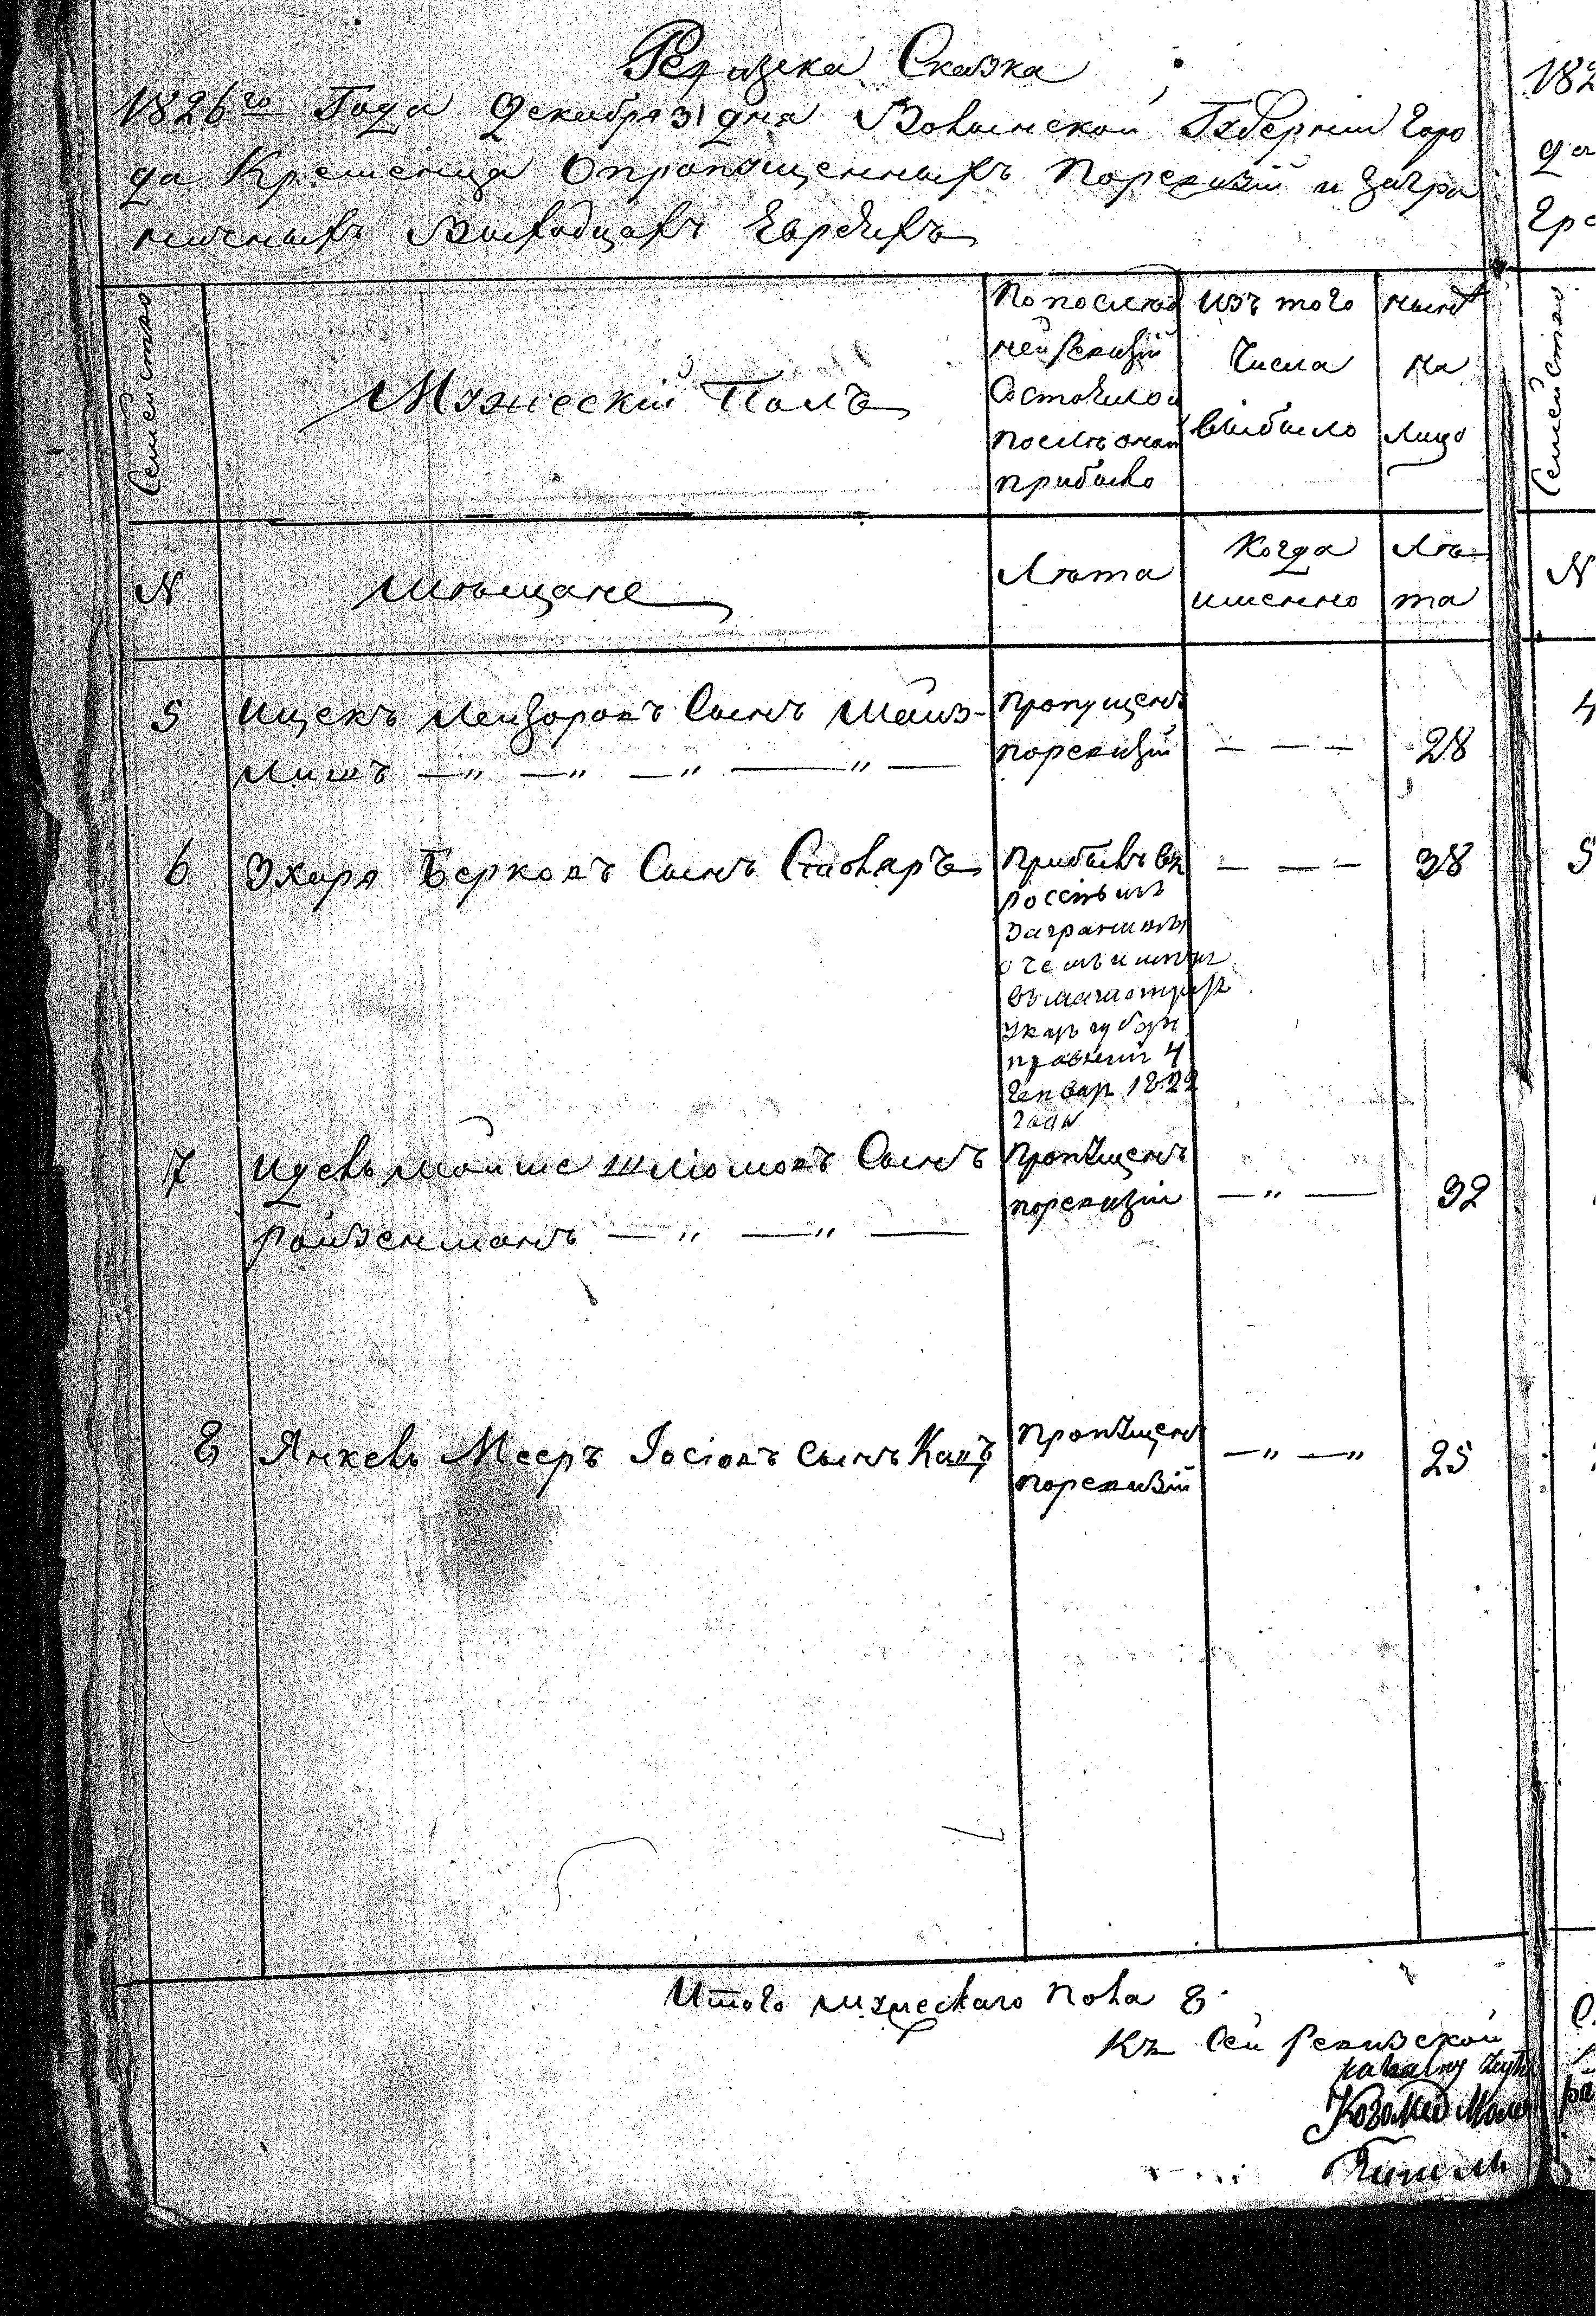 Ревизска Сказка
1826го Года Декабря 31 дня Волынской Губернии горо
да Кременца Опропущенныхъ поревизій и загра
ничныхъ Выходцахъ Евреихъ
Семейство
Мужескій Полъ
По послѣд
ней Ревизій
Состояло и
послѣ оной
прибыло
изъ того
Числа
выбыло
нынѣ
на
лицо
N
мѣщане
Лѣта
Когда
именно
Лѣ
та
5 Ицекъ Лейзоровъ Сынъ Майз-
лишъ —„ —„ —„ ——„ —
пропущенъ
поревизій
— — —
28
6 Эхиря Берковъ Сынъ Столяръ
прибылъ въ
Россію изъ
заграницы
о чемъ имѣт
въ магистратъ
Указъ губерн
правлени 4
Генвар 1822
года
— — —
38
7 Идель мойше шлiомовъ Сынъ
ройзенманъ —„ —„ —
пропущенъ
поревизіи
—„ —
32
8 Янкель Мееръ Іосіовъ сынъ Кацъ
пропущенъ
поревизій
—„ —„
25
Итого мужескаго пола 8
Къ Сей Ревизской
182
да
Евре
Семейство
N
4
5